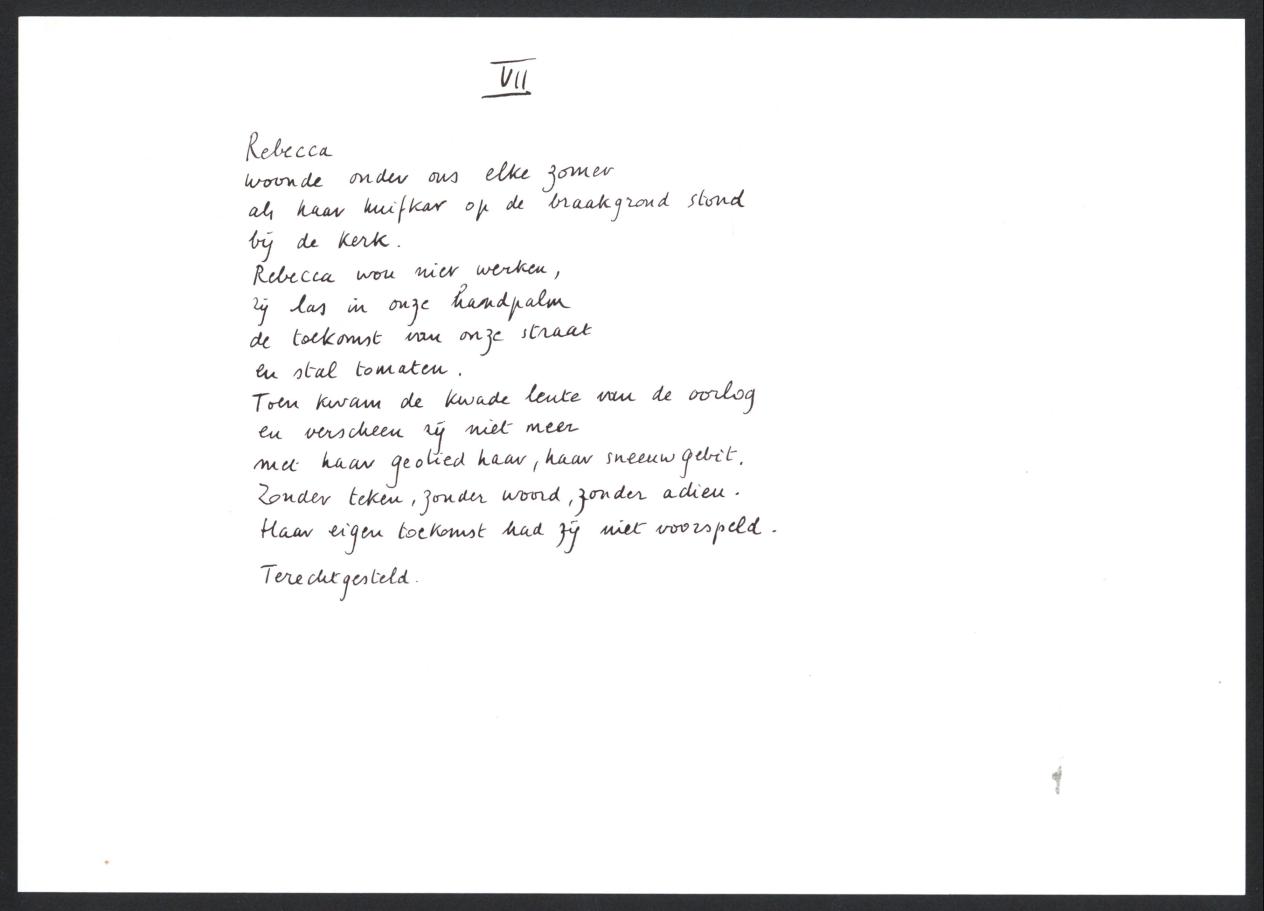 VII
Rebecca
woonde onder ons elke zomer
als haar huifkar op de braakgrond stond
bij de kerk.
Rebecca wou niet werken,
zij las in onze handpalm
de toekomst van onze straat
en stal tomaten.
Toen kwam de kwade lente van de oorlog
en verscheen zij niet meer
met haar geolied haar, haar sneeuwgebit.
Zonder teken, zonder woord, zonder adieu.
Haar eigen toekomst had zij niet voorspeld.
Terechtgesteld.